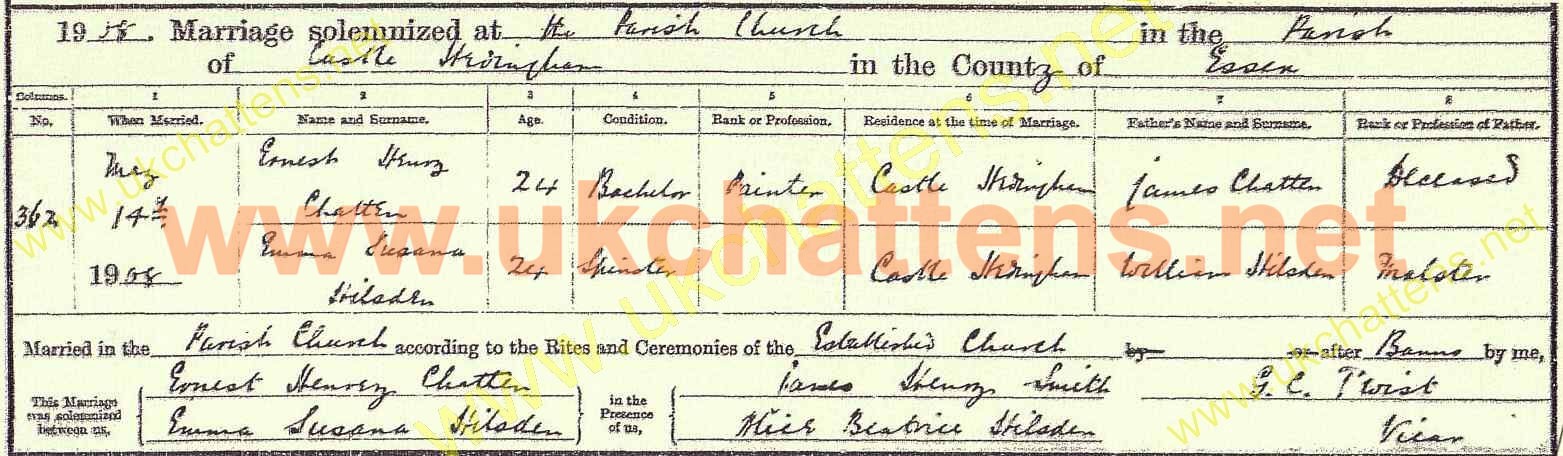 1908. Marriage solemnized at the Parish Church in the Parish
of Castle Hedingham in the County of Essex
Columns. 1 2 3 4 5 6 7 8
No. When Married. Name and Surname. Age. Condition. Rank or Profession. Residence at the time of Marriage. Father's Name and Surname. Rank or Profession of Father.
362 May 14th 1908
Ernest Henry Chatten 24 Bachelor Painter Castle Hedingham James Chatten Deceased
Emma Susana Hilsden 24 Spinster Castle Hedingham William Hilsden Malster
Married in the Parish Church according to the Rites and Ceremonies of the Establish'd Church by or after Banns by me,
This Marriage was solemnized between us, Ernest Henry Chatten in the Presence of us, James Henry Smith G. C. Twist
Emma Susana Hilsden Alice Beatrice Hilsden Vicar
www.ukchattens.net
www.ukchattens.net
www.ukchattens.net
www.ukchattens.net
www.ukchattens.net